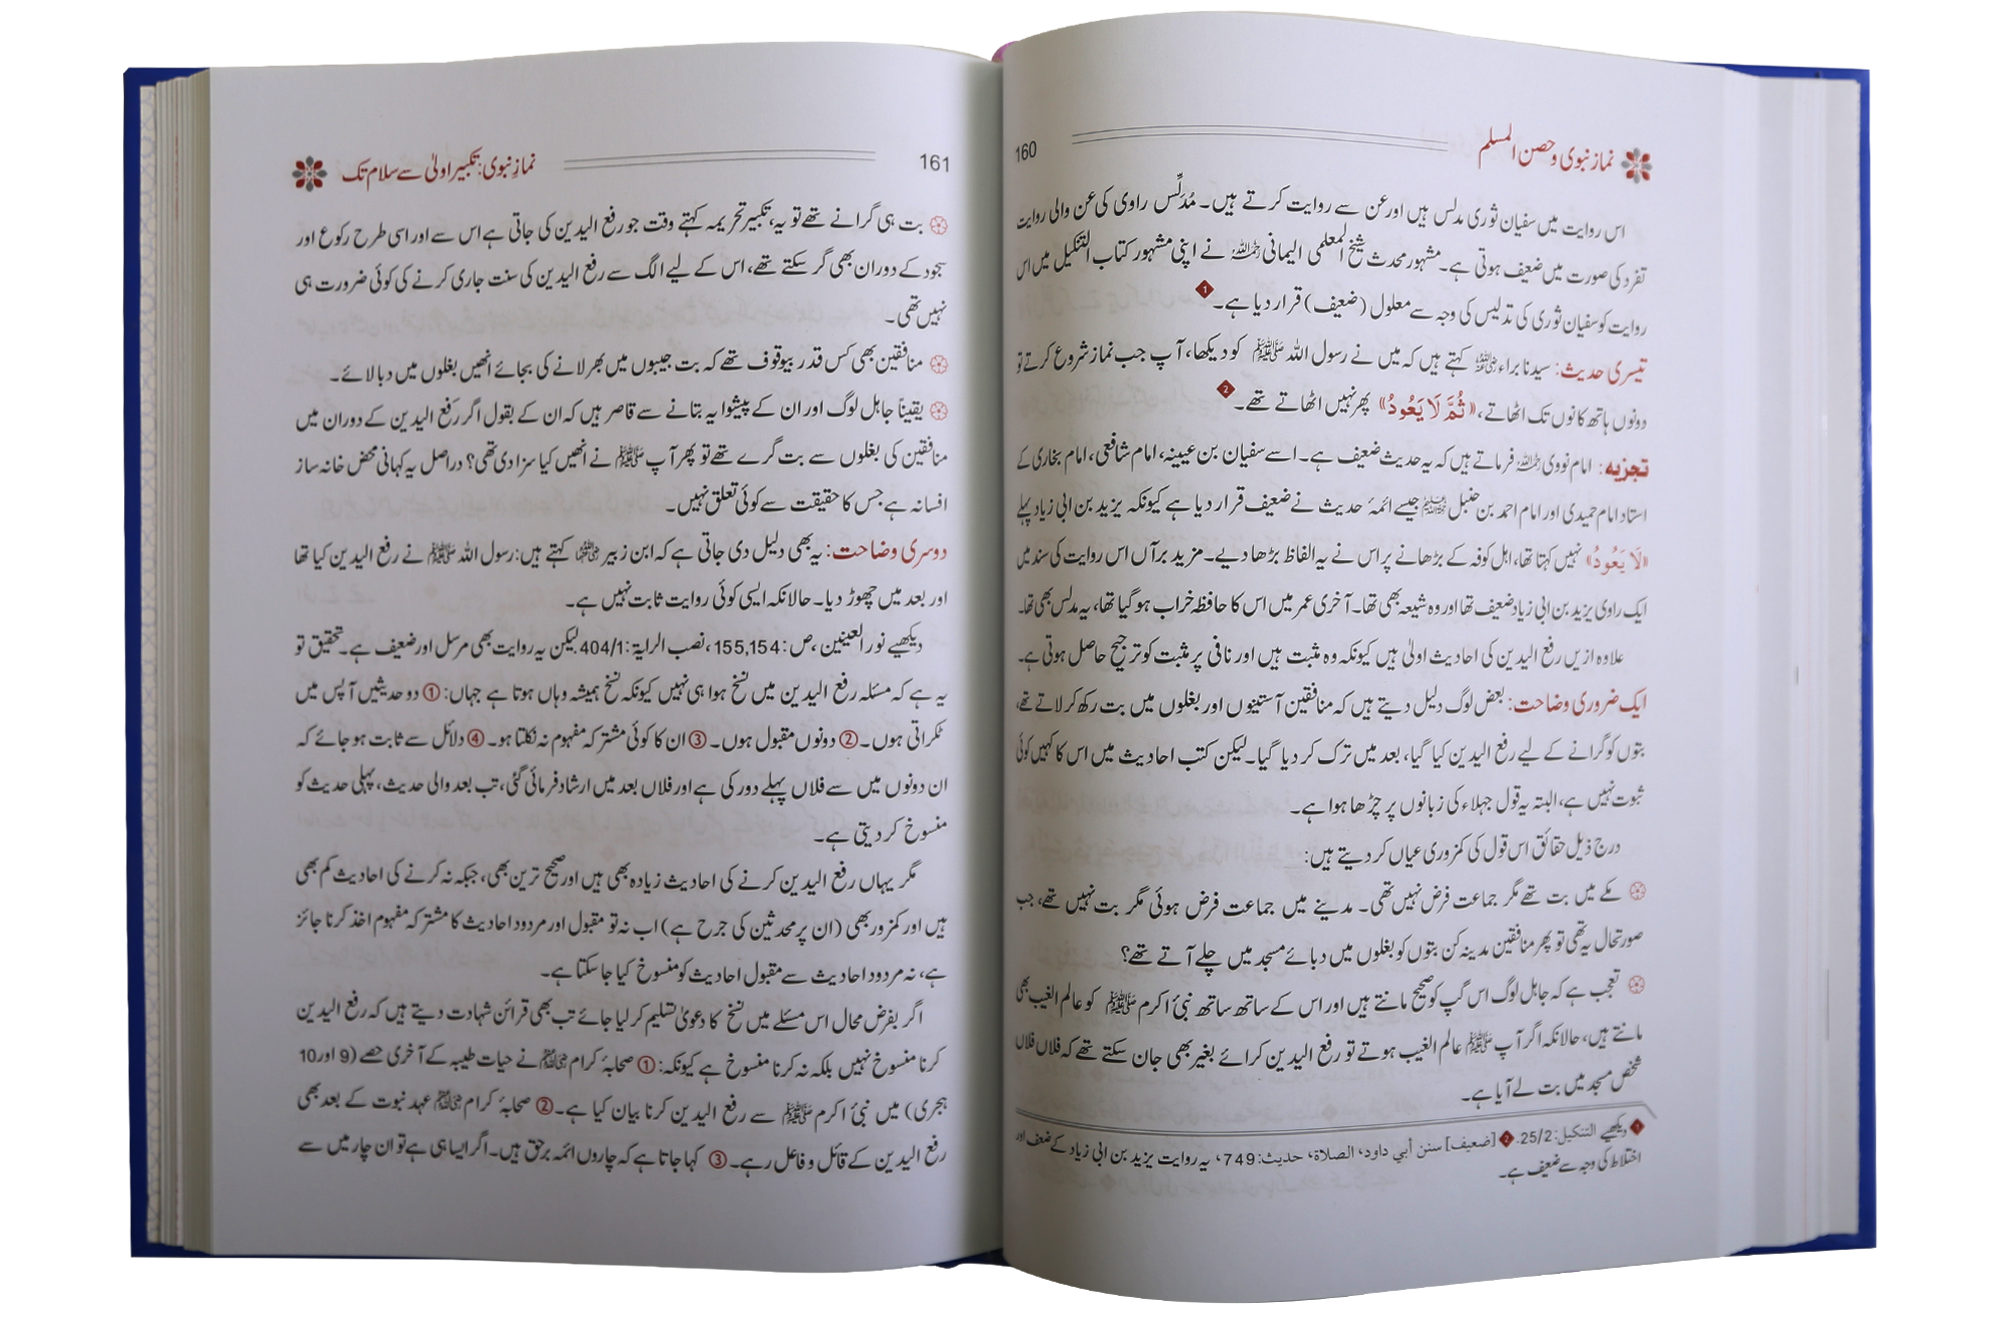 نماز نبوی و حصن المسلم
160
اس روایت میں سفیان ثوری مدلس ہیں اور عن سے روایت کرتے ہیں۔ مُدَلِّس راوی کی عن والی روایت
تفرد کی صورت میں ضعیف ہوتی ہے۔ مشہور محدث شیخ المعلمی الیمانی رحمہ اللہ نے اپنی مشہور کتاب التنکیل میں اس
روایت کو سفیان ثوری کی تدلیس کی وجہ سے معلول (ضعیف) قرار دیا ہے۔ 1
تیسری حدیث: سیدنا براء رضی اللہ عنہ کہتے ہیں کہ میں نے رسول اللہ ﷺ کو دیکھا، آپ جب نماز شروع کرتے تو
دونوں ہاتھ کانوں تک اٹھاتے، «ثُمَّ لَا يَعُودُ» پھر نہیں اٹھاتے تھے۔ 2
تجزیہ: امام نووی رحمہ اللہ فرماتے ہیں کہ یہ حدیث ضعیف ہے۔ اسے سفیان بن عیینہ، امام شافعی، امام بخاری کے
استاد امام حمیدی اور امام احمد بن حنبل جیسے ائمۂ حدیث نے ضعیف قرار دیا ہے کیونکہ یزید بن ابی زیاد پہلے
«لَا يَعُودُ» نہیں کہتا تھا، اہل کوفہ کے بڑھانے پر اس نے یہ الفاظ بڑھا دیے۔ مزید برآں اس روایت کی سند میں
ایک راوی یزید بن ابی زیاد ضعیف تھا اور وہ شیعہ بھی تھا۔ آخری عمر میں اس کا حافظہ خراب ہو گیا تھا، یہ مدلس بھی تھا۔
علاوہ ازیں رفع الیدین کی احادیث اولیٰ ہیں کیونکہ وہ مثبت ہیں اور نافی پر مثبت کو ترجیح حاصل ہوتی ہے۔
ایک ضروری وضاحت: بعض لوگ دلیل دیتے ہیں کہ منافقین آستینوں اور بغلوں میں بت رکھ کر لاتے تھے،
بتوں کو گرانے کے لیے رفع الیدین کیا گیا، بعد میں ترک کر دیا گیا۔ لیکن کتب احادیث میں اس کا کہیں کوئی
ثبوت نہیں ہے، البتہ یہ قول جہلاء کی زبانوں پر چڑھا ہوا ہے۔
درج ذیل حقائق اس قول کی کمزوری عیاں کر دیتے ہیں:
مکے میں بت تھے مگر جماعت فرض نہیں تھی۔ مدینے میں جماعت فرض ہوئی مگر بت نہیں تھے، جب
صورتحال یہ تھی تو پھر منافقین مدینہ کن بتوں کو بغلوں میں دبائے مسجد میں چلے آتے تھے؟
تعجب ہے کہ جاہل لوگ اس گپ کو صحیح مانتے ہیں اور اس کے ساتھ ساتھ نبیٔ اکرم ﷺ کو عالم الغیب بھی
مانتے ہیں، حالانکہ اگر آپ ﷺ عالم الغیب ہوتے تو رفع الیدین کرائے بغیر بھی جان سکتے تھے کہ فلاں فلاں
شخص مسجد میں بت لے آیا ہے۔
1 دیکھیے التنکیل: 25/2. 2 [ضعیف] سنن أبي داود، الصلاة، حدیث: 749، یہ روایت یزید بن ابی زیاد کے ضعف اور
اختلاط کی وجہ سے ضعیف ہے۔
نمازِ نبوی: تکبیر اولیٰ سے سلام تک
161
بت ہی گرانے تھے تو یہ، تکبیر تحریمہ کہتے وقت جو رفع الیدین کی جاتی ہے اس سے اور اسی طرح رکوع اور
سجود کے دوران بھی گر سکتے تھے، اس کے لیے الگ سے رفع الیدین کی سنت جاری کرنے کی کوئی ضرورت ہی
نہیں تھی۔
منافقین بھی کس قدر بیوقوف تھے کہ بت جیبوں میں بھر لانے کی بجائے انھیں بغلوں میں دبا لائے۔
یقیناً جاہل لوگ اور ان کے پیشوا یہ بتانے سے قاصر ہیں کہ ان کے بقول اگر رفع الیدین کے دوران میں
منافقین کی بغلوں سے بت گرے تھے تو پھر آپ ﷺ نے انھیں کیا سزا دی تھی؟ دراصل یہ کہانی محض خانہ ساز
افسانہ ہے جس کا حقیقت سے کوئی تعلق نہیں۔
دوسری وضاحت: یہ بھی دلیل دی جاتی ہے کہ ابن زبیر رضی اللہ عنہما کہتے ہیں: رسول اللہ ﷺ نے رفع الیدین کیا تھا
اور بعد میں چھوڑ دیا۔ حالانکہ ایسی کوئی روایت ثابت نہیں ہے۔
دیکھیے نور العینین، ص: 155,154، نصب الرایة: 404/1 لیکن یہ روایت بھی مرسل اور ضعیف ہے۔ تحقیق تو
یہ ہے کہ مسئلہ رفع الیدین میں نسخ ہوا ہی نہیں کیونکہ نسخ ہمیشہ وہاں ہوتا ہے جہاں: ① دو حدیثیں آپس میں
ٹکراتی ہوں۔ ② دونوں مقبول ہوں۔ ③ ان کا کوئی مشترکہ مفہوم نہ نکلتا ہو۔ ④ دلائل سے ثابت ہو جائے کہ
ان دونوں میں سے فلاں پہلے دور کی ہے اور فلاں بعد میں ارشاد فرمائی گئی، تب بعد والی حدیث، پہلی حدیث کو
منسوخ کر دیتی ہے۔
مگر یہاں رفع الیدین کرنے کی احادیث زیادہ بھی ہیں اور صحیح ترین بھی، جبکہ نہ کرنے کی احادیث کم بھی
ہیں اور کمزور بھی (ان پر محدثین کی جرح ہے) اب نہ تو مقبول اور مردود احادیث کا مشترکہ مفہوم اخذ کرنا جائز
ہے، نہ مردود احادیث سے مقبول احادیث کو منسوخ کیا جا سکتا ہے۔
اگر بفرض محال اس مسئلے میں نسخ کا دعویٰ تسلیم کر لیا جائے تب بھی قرائن شہادت دیتے ہیں کہ رفع الیدین
کرنا منسوخ نہیں بلکہ نہ کرنا منسوخ ہے کیونکہ: ① صحابۂ کرام رضی اللہ عنہم نے حیات طیبہ کے آخری حصے (9 اور 10
ہجری) میں نبیٔ اکرم ﷺ سے رفع الیدین کرنا بیان کیا ہے۔ ② صحابۂ کرام رضی اللہ عنہم عہد نبوت کے بعد بھی
رفع الیدین کے قائل و فاعل رہے۔ ③ کہا جاتا ہے کہ چاروں ائمہ برحق ہیں۔ اگر ایسا ہی ہے تو ان چار میں سے